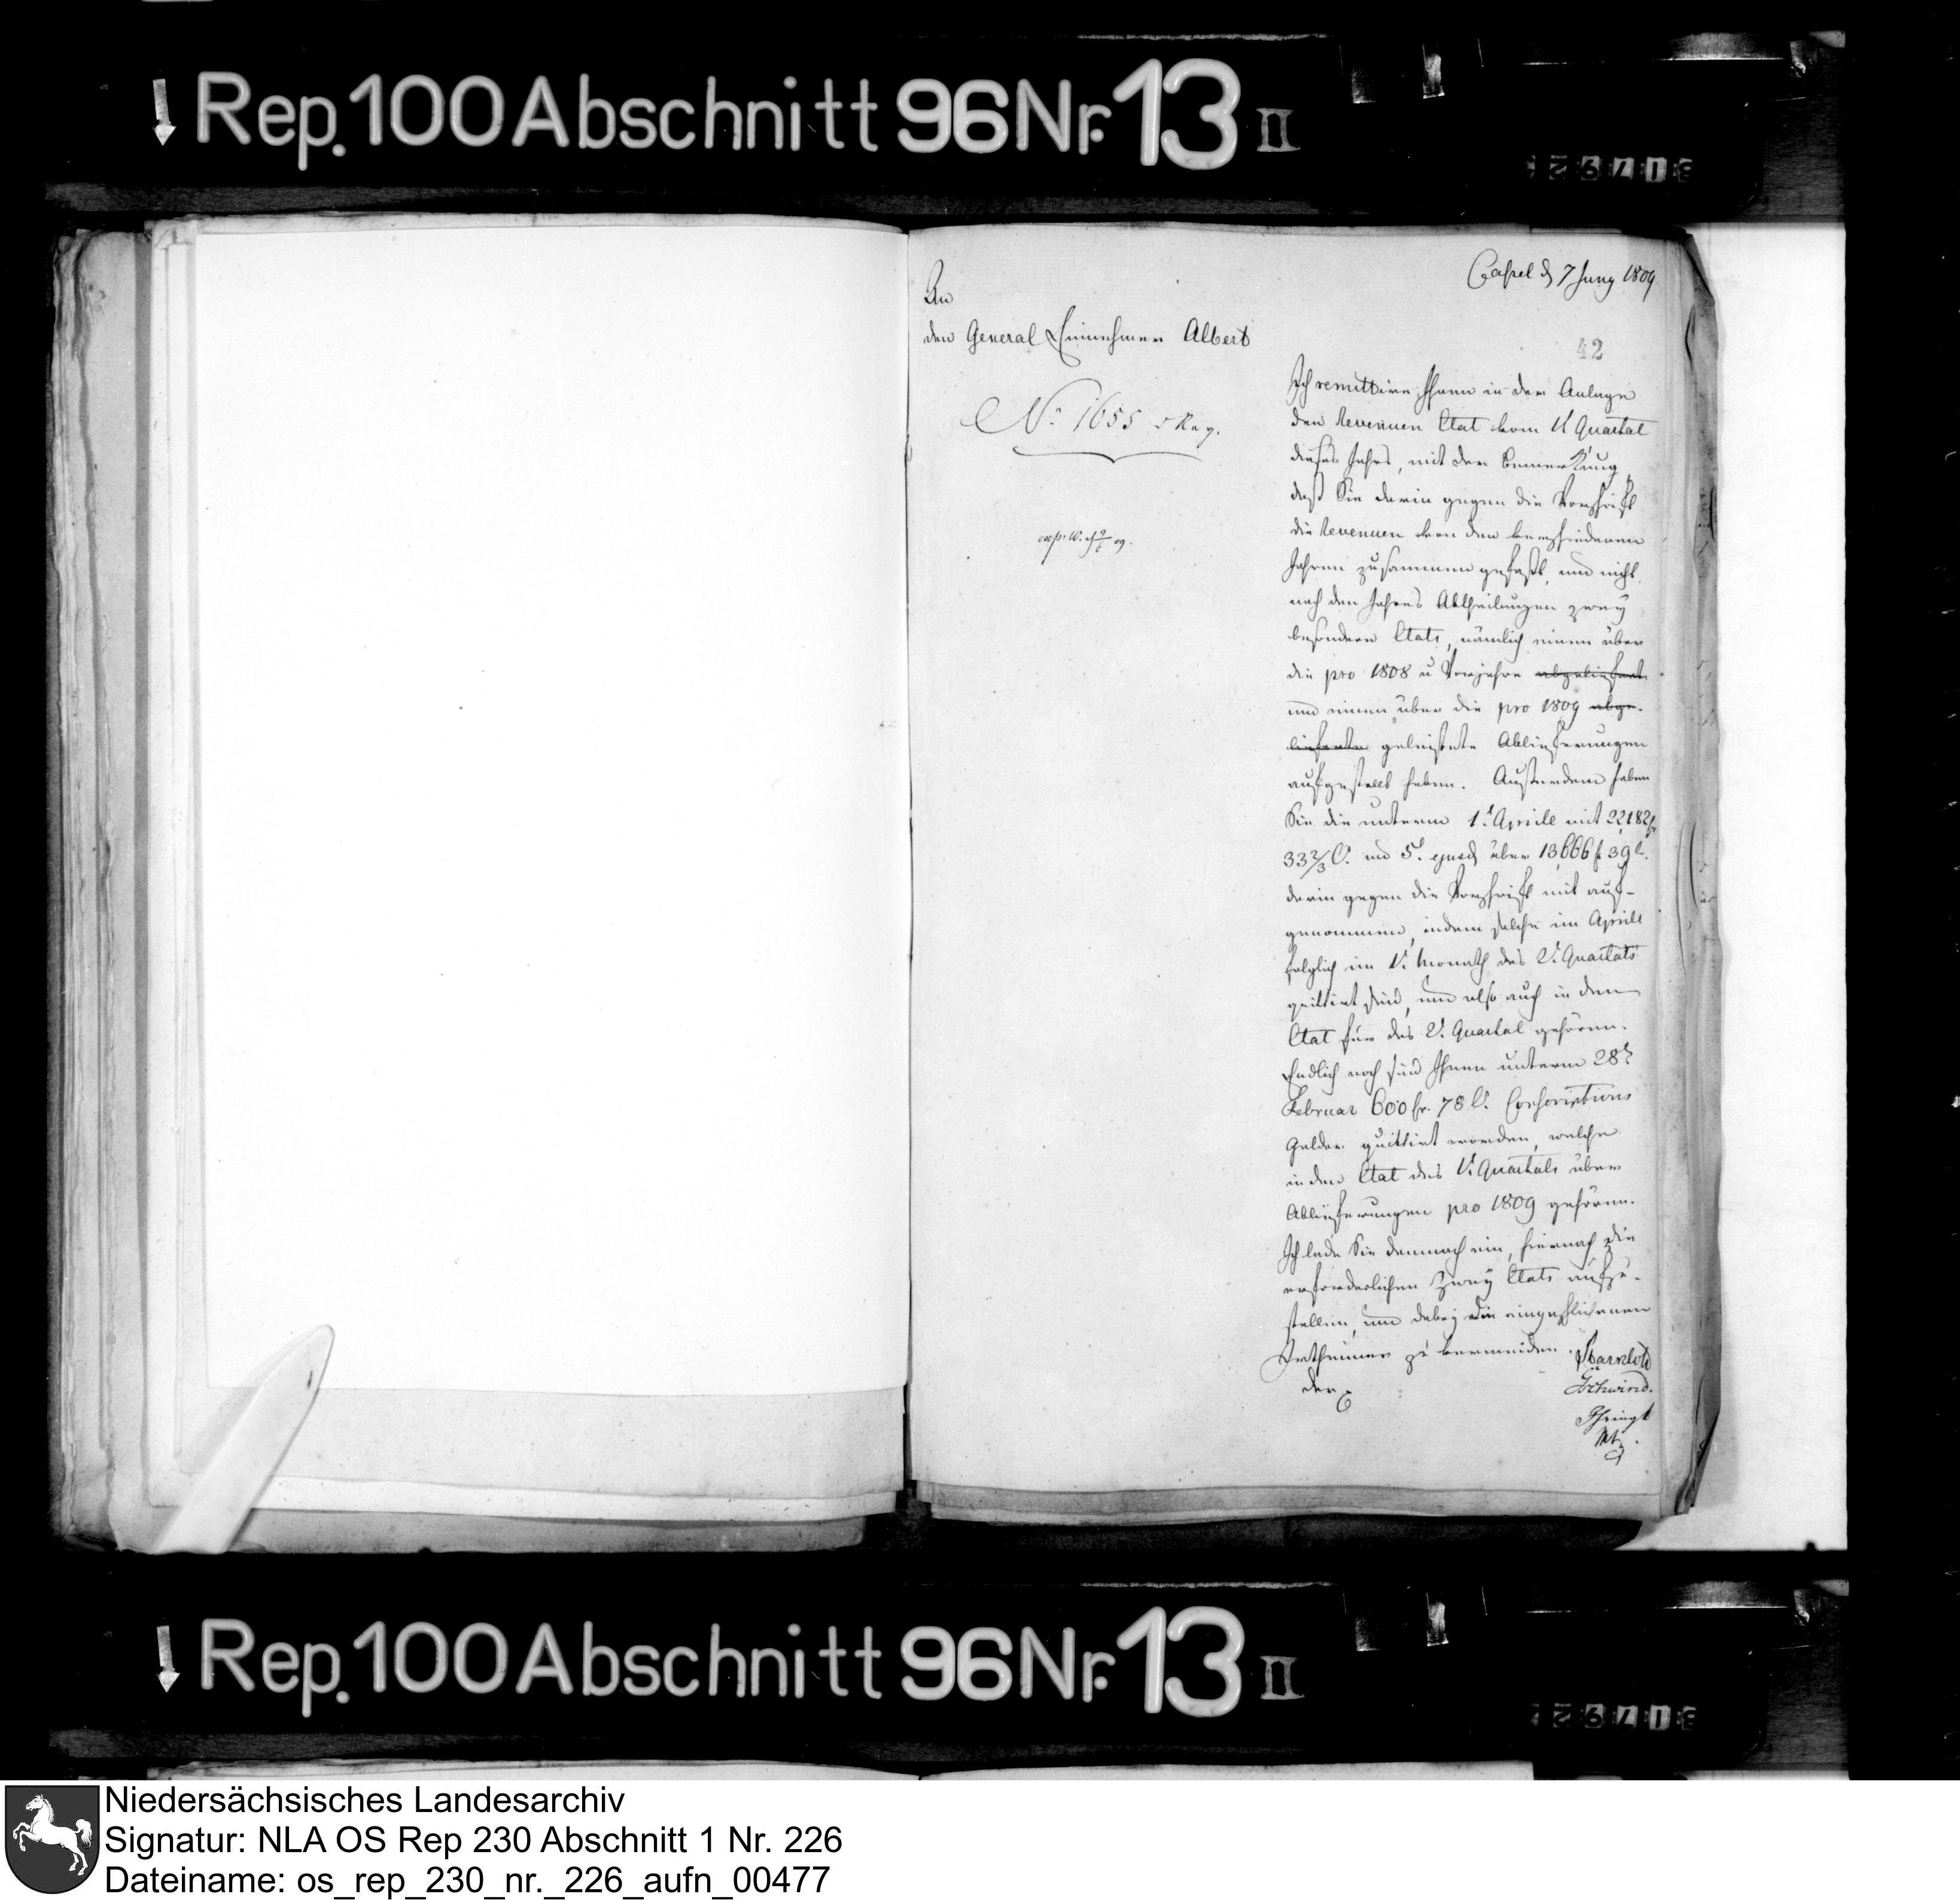 Rep. 100 Abschnitt 96 Nr. 13 II
Cassel d 7 Juny 1809
An
den General Einnehmer Albert
42
No. 1655
Ich remittire Ihnen in der Anlage
den Revenuen Etat vom 1t Quartal
dieses Jahrs, mit der Bemerkung,
daß Sie darin gegen die Vorschrift
die Revenuen von den verschiedenen
Jahren zusammen gefaßt, und nicht
nach den Jahres Abtheilungen zwey
besondern Etats, nämlich einen über
die pro 1808 u Vorjahre abgeliefert
und einen über die pro 1809 abge-
lieferte geleistete Ablieferungen
aufgestellt haben. Ausserdem haben
Sie die unterm 1t Aprile mit 22182 fr
33 2/3 C. und 5t ejusd über 13,666 f 39 C.
darin gegen die Vorschrift mit auf-
genommen, indem solche im Aprill
folglich im 1t Monath des 2t Quartals
quittirt sind, und also auch in den
Etat für das 2t Quartal gehören.
Endlich noch sind Ihnen unterm 28t
Februar 600 fr. 78 C. Conscriptions
Gelder quittirt worden, welche
in den Etat des 1t Quartals über
Ablieferungen pro 1809 gehören.
Ich lade Sie demnach ein, hiernach die
erforderlichen zwey Etats aufzu-
stellen, und dabey die eingeschlichenen
Irthümer zu vermeiden.
der
Rep. 100 Abschnitt 96 Nr. 13 II
Niedersächsisches Landesarchiv
Signatur: NLA OS Rep 230 Abschnitt 1 Nr. 226
Dateiname: os_rep_230_nr._226_aufn_00477